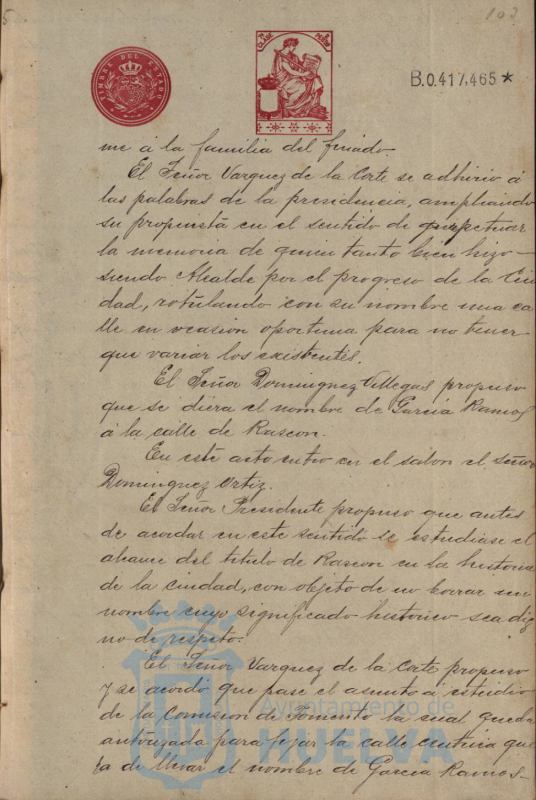 103
TIMBRE DEL ESTADO
B.0.417.465 *
me á la familia del finado.
El Señor Vazquez de la Corte se adhirio á
las palabras de la presidencia, ampliando
su propuesta en el sentido de perpetuar
la memoria de quien tanto bien hizo
siendo Alcalde por el progreso de la Ciu
dad, rotulando con su nombre una ca
lle en ocasion oportuna para no tener
que variar los existentes.
El Señor Dominguez Villegas propuso
que se diera el nombre de Garcia Ramos
á la calle de Rascon.
En este acto entro en el salon el señor
Dominguez Ortiz.
El Señor Presidente propuso que antes
de acordar en este sentido se estudiase el
alcance del titulo de Rascon en la historia
de la ciudad, con objeto de no borrar un
nombre cuyo significado historico sea dig
no de respeto.
El Señor Vazquez de la Corte propuso
y se acordó que pase el asunto á estudio
de la Comision de Fomento la cual queda
autorizada para fijar la calle centrica que
ha de llevar el nombre de Garcia Ramos-
Ayuntamiento de
HUELVA